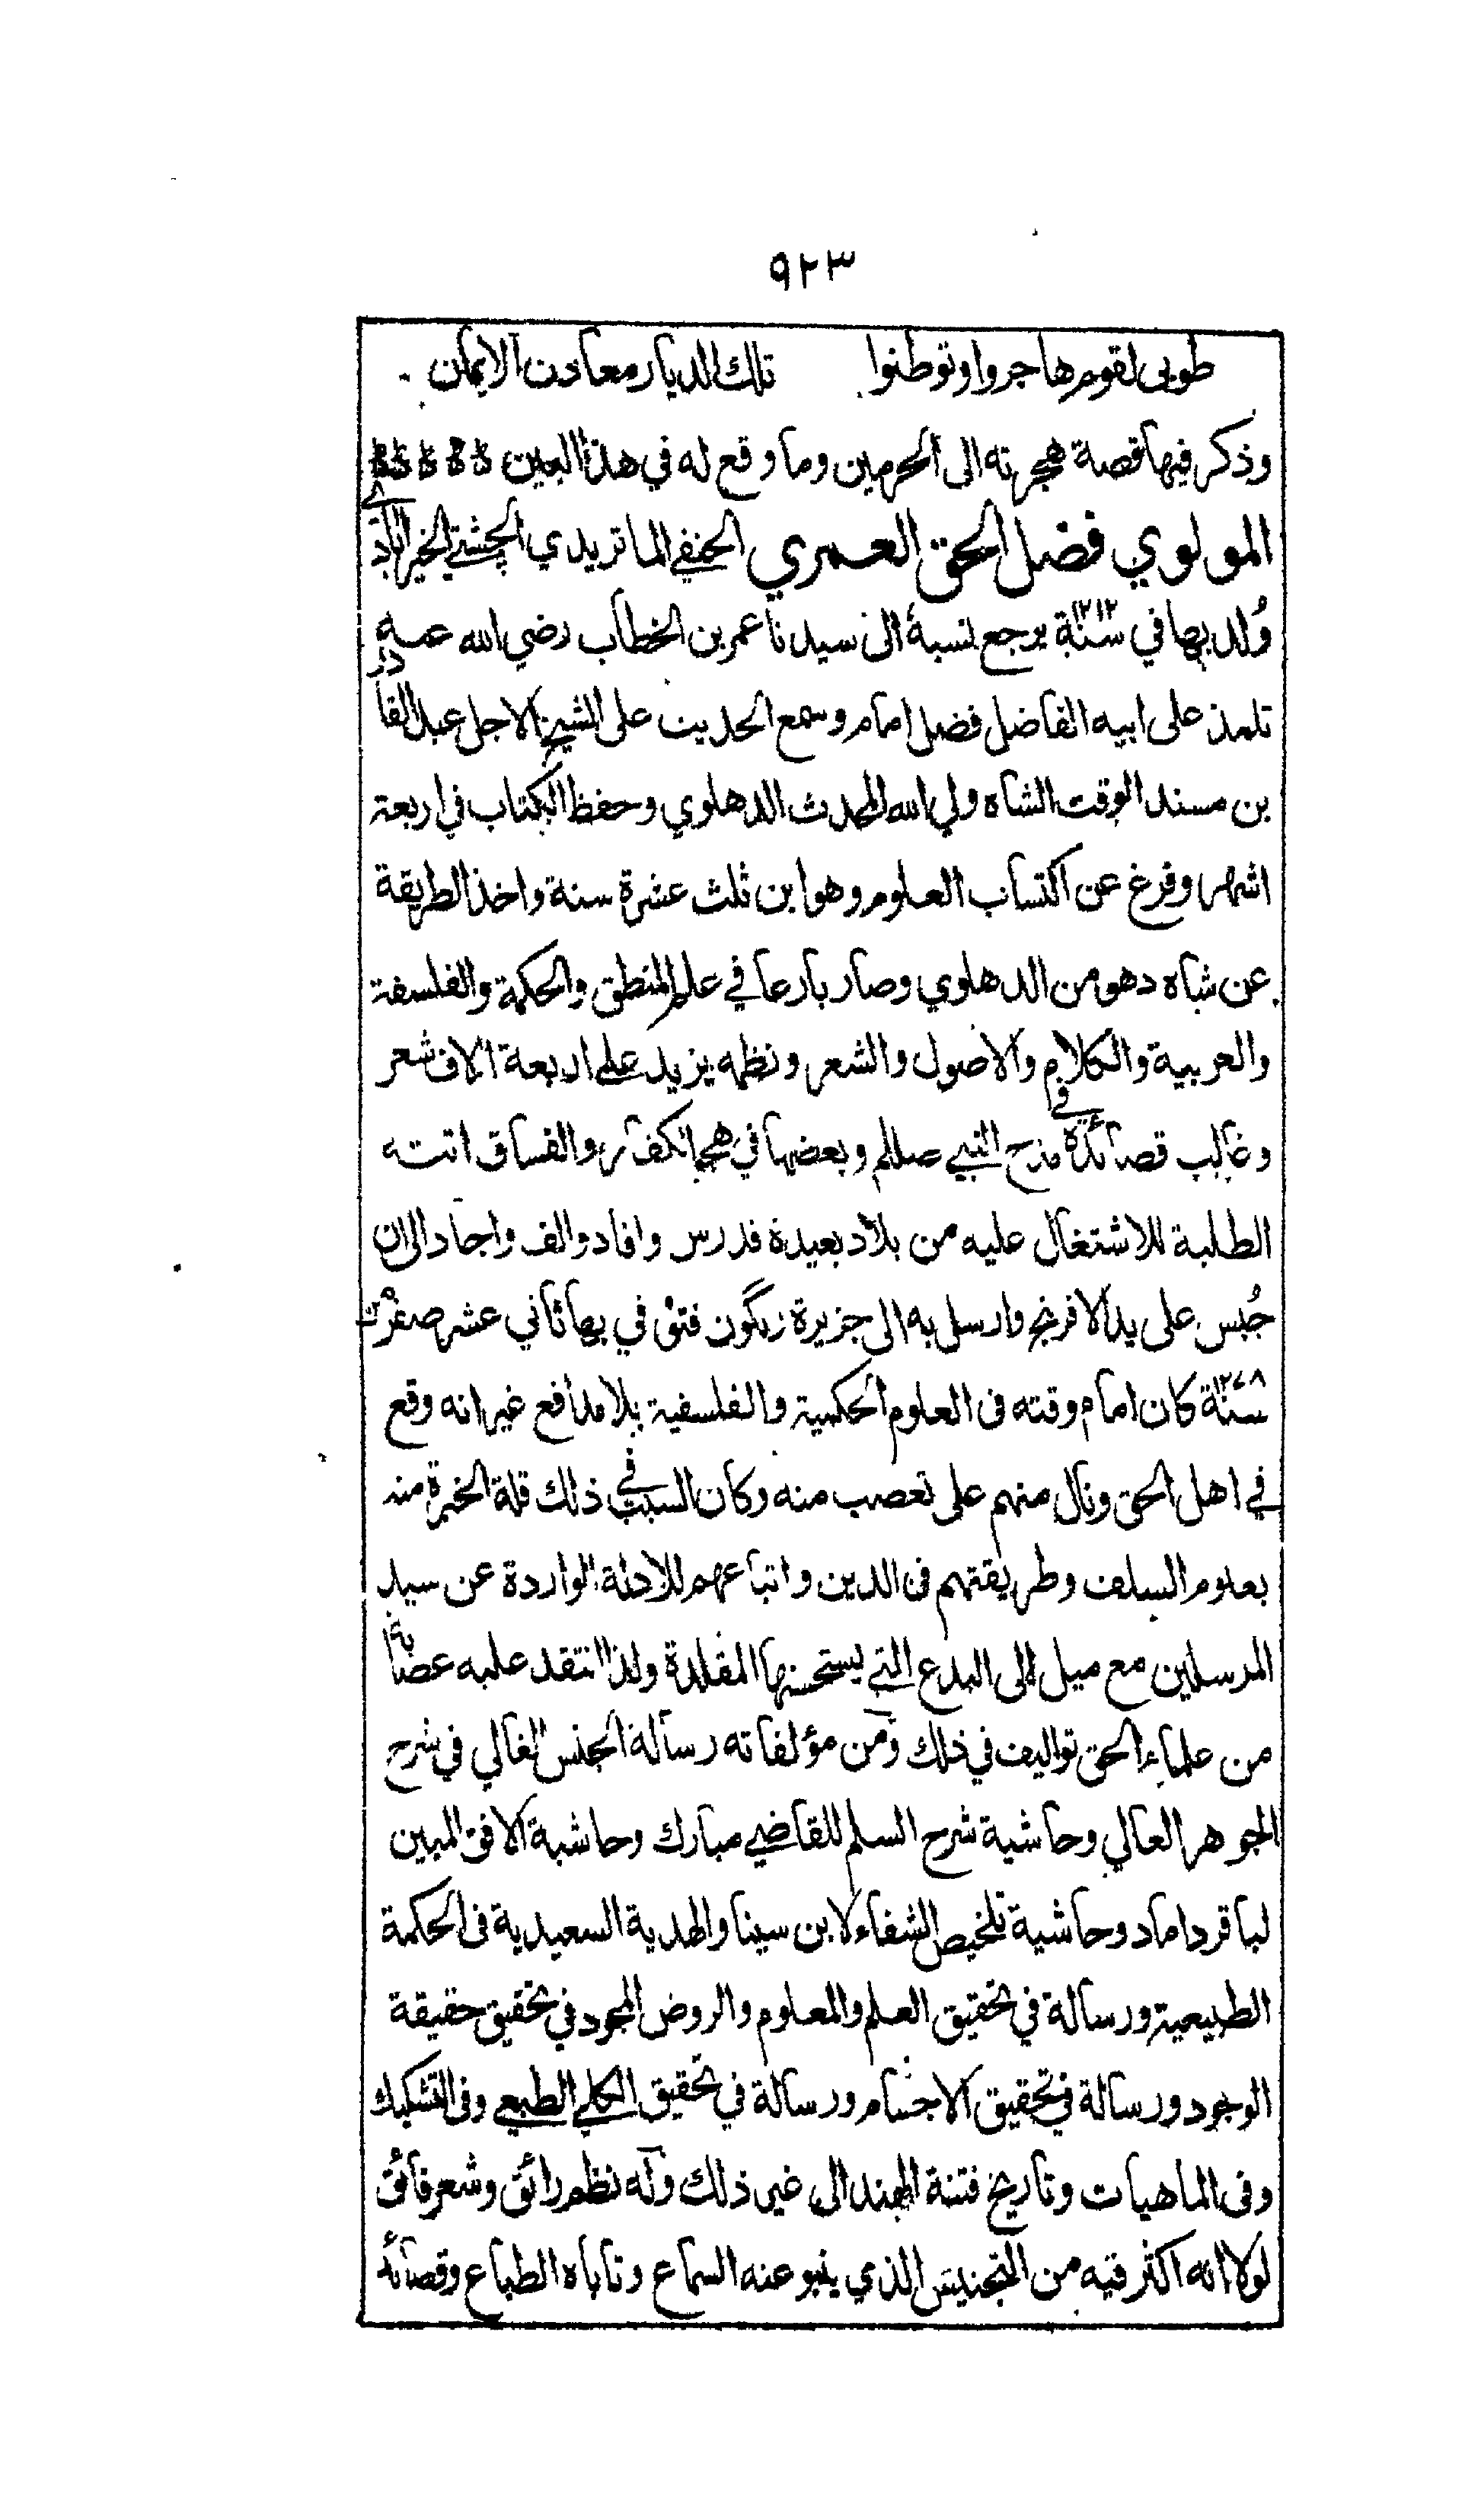 ٩٢٣
طوبى لقوم هاجروا وتوطنوا تلك الديار معادن الايمان
وذكر فيها قصة هجرته الى الحرمين وما وقع له في هذا البين
المولوي فضل الحق العمري الحنفي الماتريدي الچشتي الخيرآبادي
وُلد بها في سنة ١٢١٢ يرجع نسبه الى سيدنا عمر بن الخطاب رضي الله عنه
تلمذ على ابيه الفاضل فضل امام وسمع الحديث على الشيخ الاجل عبد القادر
بن مسند الوقت الشاه ولي الله المحدث الدهلوي وحفظ الكتاب في اربعة
اشهر وفرغ عن اكتساب العلوم وهو ابن ثلث عشرة سنة واخذ الطريقة
عن شاه دهومن الدهلوي وصار بارعا في علم المنطق والحكمة والفلسفة
والعربية والكلام والاصول والشعر ونظمه يزيد على اربعة الاف شعر
وغالب قصائده في مدح النبي صللم وبعضها في هجو الكفار والفساق اتته
الطلبة للاشتغال عليه من بلاد بعيدة فدرس وافاد والف واجاد الى ان
حُبس على يد الافرنج وارسل به الى جزيرة رنگون فتوفي بها ثاني عشر صفر
سنة ١٢٧٨ كان امام وقته فى العلوم الحكمية والفلسفية بلا مدافع غير انه وقع
في اهل الحق ونال منهم على تعصب منه وكان السبب في ذلك قلة الخبرة منه
بعلوم السلف وطريقتهم فى الدين واتباعهم للادلة الواردة عن سيد
المرسلين مع ميل الى البدع التي يستحسنها المقلدة ولذا انتقد عليه عصابة
من علماء الحق تواليف في ذلك ومن مؤلفاته رسالة الجنس الغالي في شرح
الجوهر العالي وحاشية شرح السلم للقاضي مبارك وحاشية الافق المبين
لباقر داماد وحاشية تلخيص الشفاء لابن سينا والهدية السعيدية فى الحكمة
الطبيعية ورسالة في تحقيق العلم والمعلوم والروض المجود في تحقيق حقيقة
الوجود ورسالة في تحقيق الاجسام ورسالة في تحقيق الكلي الطبعي وفى التشكيك
وفى الماهيات وتاريخ فتنة الهند الى غير ذلك وله نظم رائق وشعر فائق
لولا انه اكثر فيه من التجنيس الذي ينبو عنه السماع وتاباه الطباع وقصائد